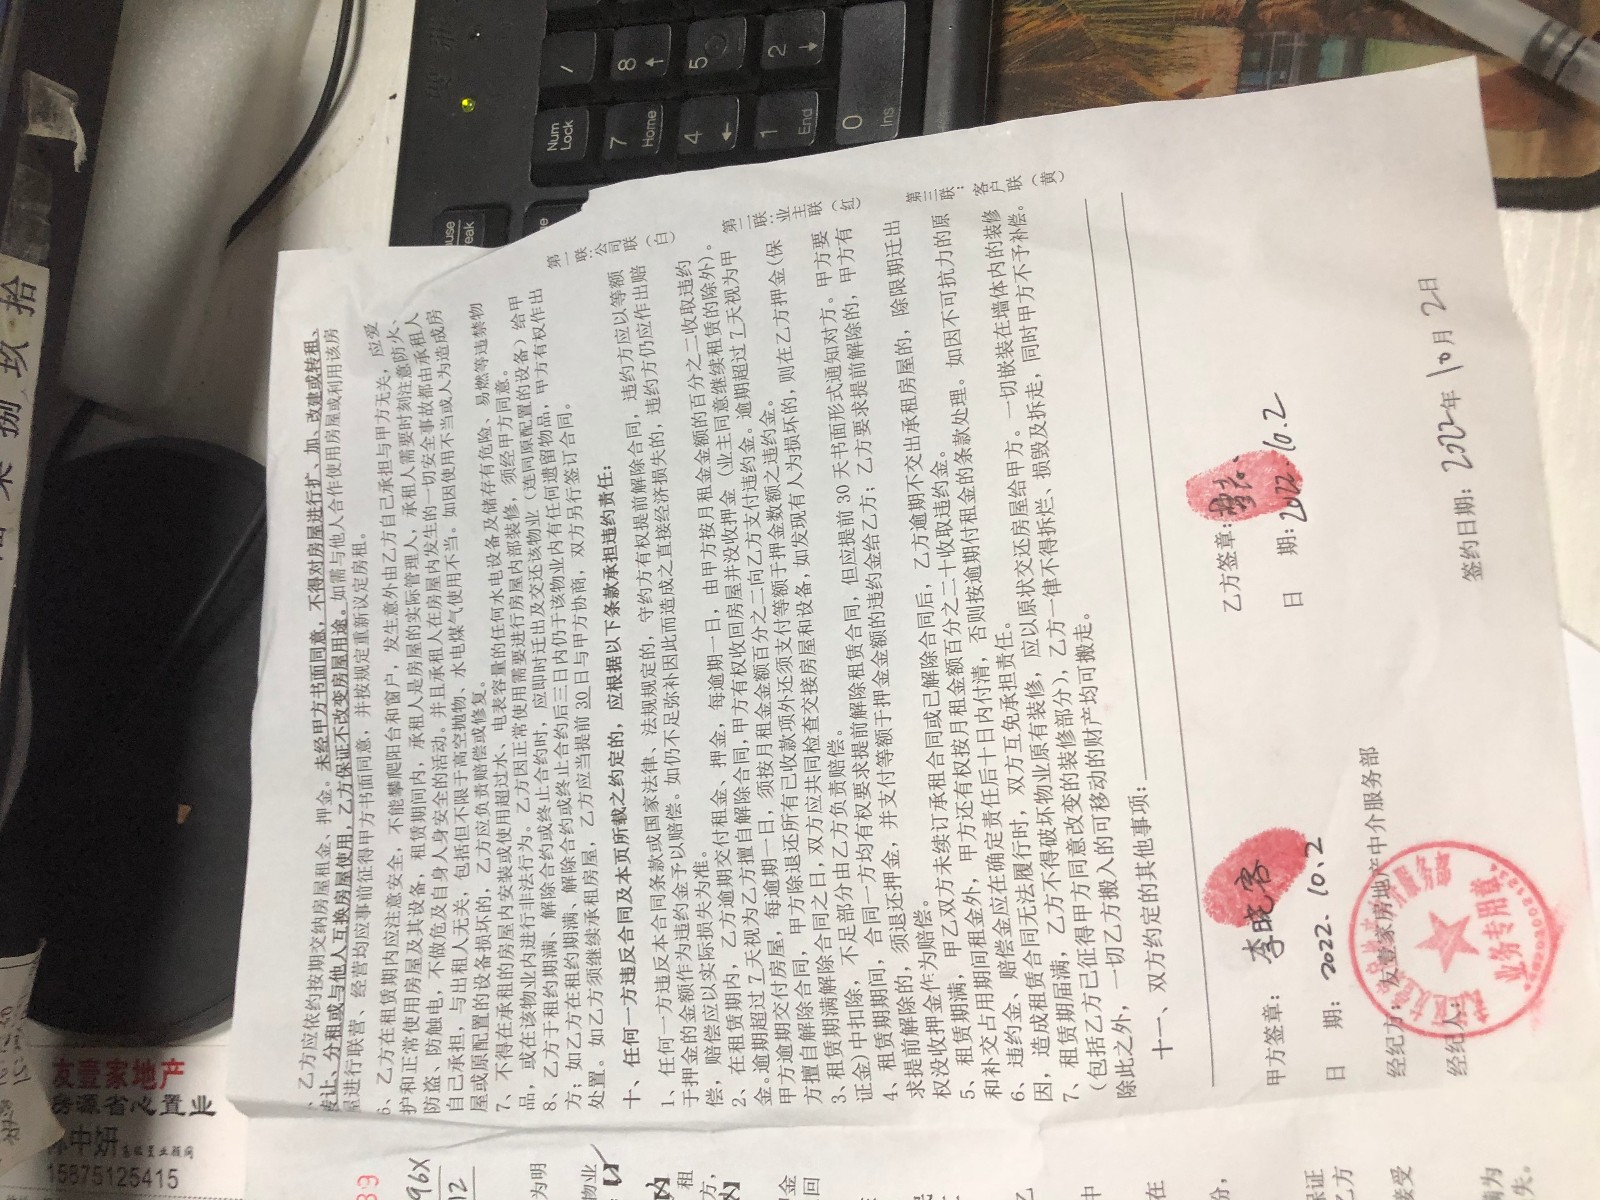 、乙方应依约按期交纳房屋租金、押金。未经甲方书面同意，不得对房屋进行扩、加、改建或转租、
转让、分租或与他人互换房屋使用，乙方保证不改变房屋用途。如需与他人合作使用房屋或利用该房
屋进行联营、经营均应事前征得甲方书面同意，并按规定重新议定房租。
6、乙方在租赁期内应注意安全，不能攀爬阳台和窗户，发生意外由乙方自己承担与甲方无关，应爱
护和正常使用房屋及其设备，租赁期间内，承租人是房屋的实际管理人，承租人需要时刻注意防火、
防盗、防触电，不做危及自身人身安全的活动。并且承租人在房屋内发生的一切安全事故都由承租人
自己承担，与出租人无关，包括但不限于高空抛物、水电煤气使用不当。如因使用不当或人为造成房
屋或原配置的设备损坏的，乙方应负责赔偿或修复。
7、不得在承租的房屋内安装或使用超过水、电表容量的任何水电设备及储存有危险、易燃等违禁物
品，或在该物业内进行非法行为。乙方因正常使用需要进行房屋内部装修，须经甲方同意。
8、乙方于租约期满、解除合约或终止合约时，应即时迁出及交还该物业（连同原配置的设备）给甲
方；如乙方在租约期满、解除合约或终止合约后三日内仍于该物业内有任何遗留物品，甲方有权作出
处置。如乙方须继续承租房屋，乙方应当提前30日与甲方协商，双方另行签订合同。
十、任何一方违反合同及本页所载之约定的，应根据以下条款承担违约责任：
1、任何一方违反本合同条款或国家法律、法规规定的，守约方有权提前解除合同，违约方应以等额
于押金的金额作为违约金予以赔偿。如仍不足弥补因此而造成之直接经济损失的，违约方仍应作出赔
偿，赔偿应以实际损失为准。
2、在租赁期内，乙方逾期交付租金、押金，每逾期一日，由甲方按月租金金额的百分之二收取违约
金。逾期超过7天视为乙方擅自解除合同，甲方有权收回房屋并没收押金（业主同意继续租赁的除外）。
甲方逾期交付房屋，每逾期一日，须按月租金金额百分之二向乙方支付违约金。逾期超过7天视为甲
方擅自解除合同，甲方除退还所有已收款项外还须支付等额于押金数额之违约金。
3、租赁期满解除合同之日，双方应共同检查交接房屋和设备，如发现有人为损坏的，则在乙方押金(保
证金)中扣除，不足部分由乙方负责赔偿。
4、租赁期期间，合同一方均有权要求提前解除租赁合同，但应提前30天书面形式通知对方。甲方要
求提前解除的，须退还押金，并支付等额于押金金额的违约金给乙方；乙方要求提前解除的，甲方有
权没收押金作为赔偿。
5、租赁期满，甲乙双方未续订承租合同或已解除合同后，乙方逾期不交出承租房屋的，除限期迁出
和补交占用期间租金外，甲方还有权按月租金额百分之二十收取违约金。
6、违约金、赔偿金应在确定责任后十日内付清，否则按逾期付租金的条款处理。如因不可抗力的原
因，造成租赁合同无法履行时，双方互免承担责任。
7、租赁期届满，乙方不得破坏物业原有装修，应以原状交还房屋给甲方。一切嵌装在墙体内的装修
（包括乙方已征得甲方同意改变的装修部分），乙方一律不得拆烂、损毁及拆走，同时甲方不予补偿。
除此之外，一切乙方搬入的可移动的财产均可搬走。
十一、双方约定的其他事项：
第一联：公司联（白）
第二联：业主联（红）
第三联：客户联（黄）
甲方签章：李晓容
乙方签章：
日 期：2022.10.2
日 期：2022.10.2
经纪方：友壹家房地产中介服务部
经纪人：
签约日期：2022年10月2日
业务专用章
友壹家地产
房颖省心置业
15875125415
96X
12
为明
物业
租
方，
金
回
乙
中
在
份，
保证
乙方
接受
为
失。
捌 玖 拾
Num Lock
/
7 Home
8
4
5
1 End
2
0 Ins